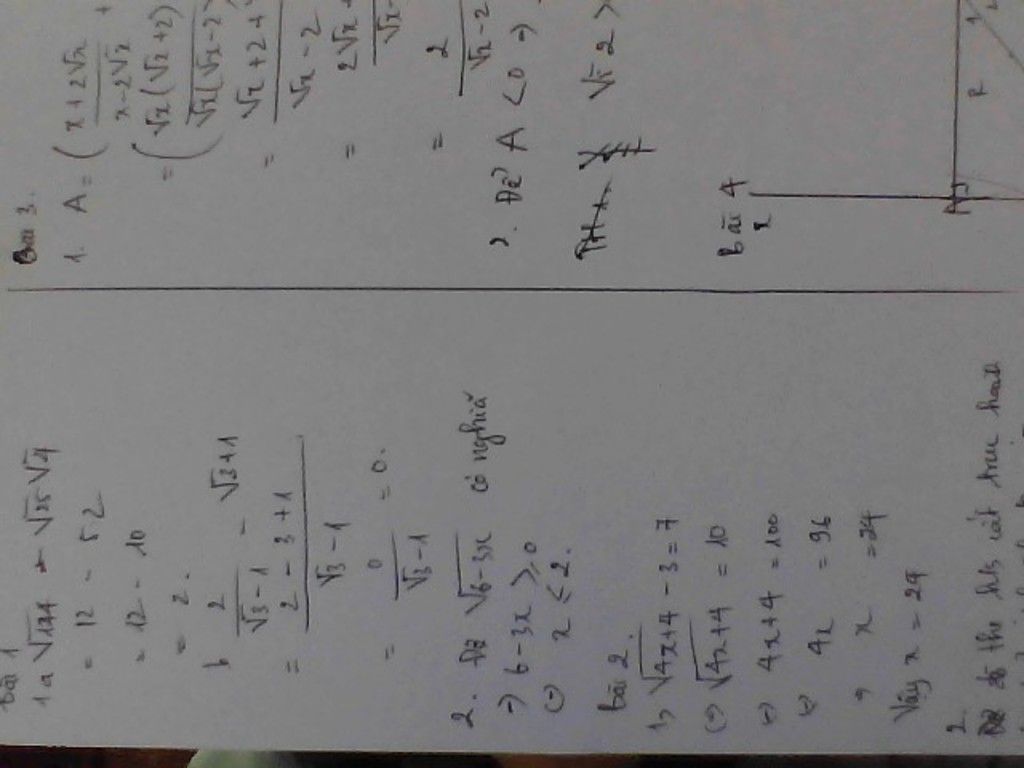 Bài 1
1a √144 - √25√4
= 12 - 5.2
= 12 - 10
= 2.
b 2/(√3-1) - √3+1
= (2 - 3 + 1)/(√3 - 1)
= 0/(√3-1) = 0.
2. Để √6-3x có nghĩa
=> 6-3x ≥ 0
(=) x ≤ 2.
Bài 2.
1, √4x+4 - 3 = 7
(=) √4x+4 = 10
(=) 4x+4 = 100
(=) 4x = 96
x = 24
Vậy x = 24
2.
Bài 3.
1. A = ( (x+2√x)/(x-2√x) +
= ( √x(√x+2)/√x(√x-2)
= (√x+2+)/(√x-2)
= 2√x
= 2/(√x-2
2. Để A < 0 =>
√ 2 >
Bài 4
x
A
R